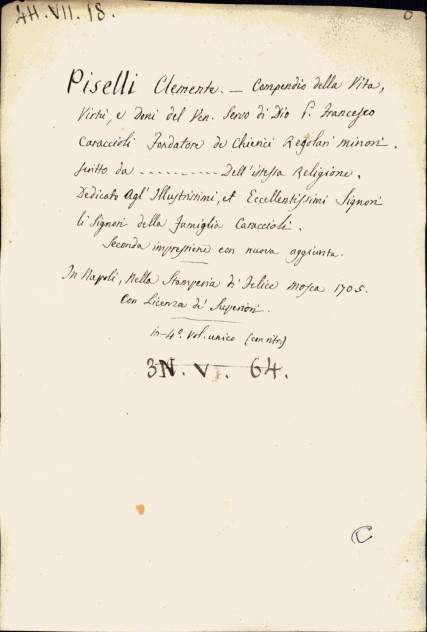 4H. VII. 18.
Piselli Clemente. — Compendio della Vita,
Virtù, e Doni del Ven. Servo di Dio P. Francesco
Caraccioli Fondatore de Chierici Regolari minori.
scritto da ............ Dell'istessa Religione.
Dedicato agl'Illustrissimi, et Eccellentissimi Signori
li Signori della famiglia Caraccioli.
Seconda impressione con nuova aggiunta.
In Napoli, Nella Stamperia di Felice Mosca 1705.
Con Licenza de' Superiori.
in-4º. Vol. unico (con ritr.)
3N. V. 64.
C